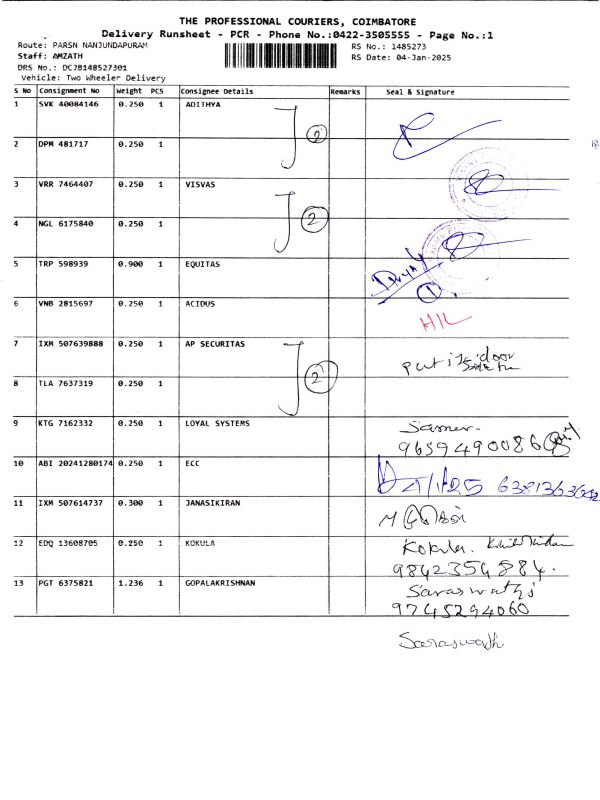 THE PROFESSIONAL COURIERS, COIMBATORE
Delivery Runsheet - PCR - Phone No.:0422-3505555 - Page No.:1
Route: PARSN NANJUNDAPURAM RS No.: 1485273
Staff: AMZATH RS Date: 04-Jan-2025
DRS No.: DCJB148527301
Vehicle: Two Wheeler Delivery
S No Consignment No Weight PCS Consignee Details Remarks Seal & Signature
1 SVK 40084146 0.250 1 ADITHYA
2
2 DPM 481717 0.250 1
3 VRR 7464407 0.250 1 VISVAS
2
4 NGL 6175840 0.250 1
5 TRP 598939 0.900 1 EQUITAS
1
6 VNB 2815697 0.250 1 ACIDUS
7 IXM 507639888 0.250 1 AP SECURITAS
put door
2
8 TLA 7637319 0.250 1
9 KTG 7162332 0.250 1 LOYAL SYSTEMS
9659490086
10 ABI 20241280174 0.250 1 ECC
4/1/25
11 IXM 507614737 0.300 1 JANASIKIRAN
12 EDQ 13608705 0.250 1 KOKULA
Kokula.
9842354884.
13 PGT 6375821 1.236 1 GOPALAKRISHNAN
Saraswathi
9745294060
Saraswath